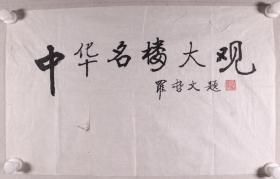 中华名楼大观
罗哲文题